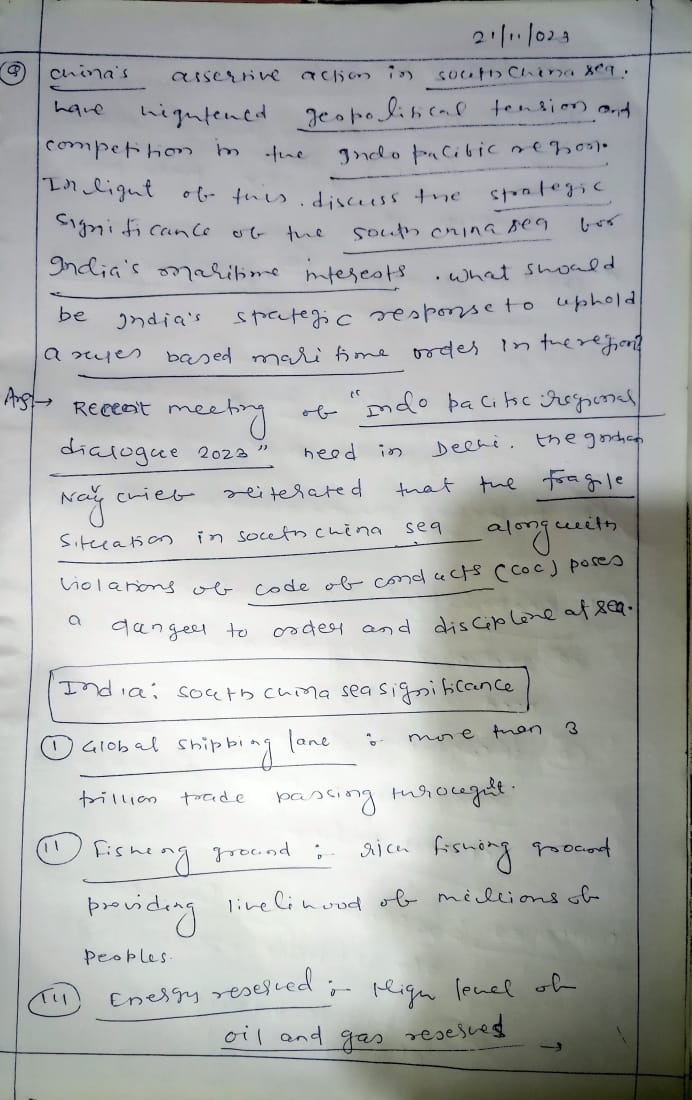 21/11/023
Q china's assertive action in south china sea.
have hightened geopolitical tension and
competition in the Indo pacific region.
In light of this. discuss the strategic
significance of the south china sea for
India's maritime interests. what should
be India's strategic response to uphold
a rules based maritime order in the region?
Ans→ Recent meeting of "Indo pacific regional
dialogue 2023" held in Delhi. the Indian
Navy chief reiterated that the fragile
situation in south china sea along with
violations of code of conducts (COC) poses
a danger to order and discipline at sea.
India: south china sea significance
(I) Global shipping lane :- more than 3
trillion trade passing through it.
(II) Fisheng ground :- rich fishing ground
providing livelihood of millions of
peoples.
(III) Energy reserved :- High level of
oil and gas reserves →